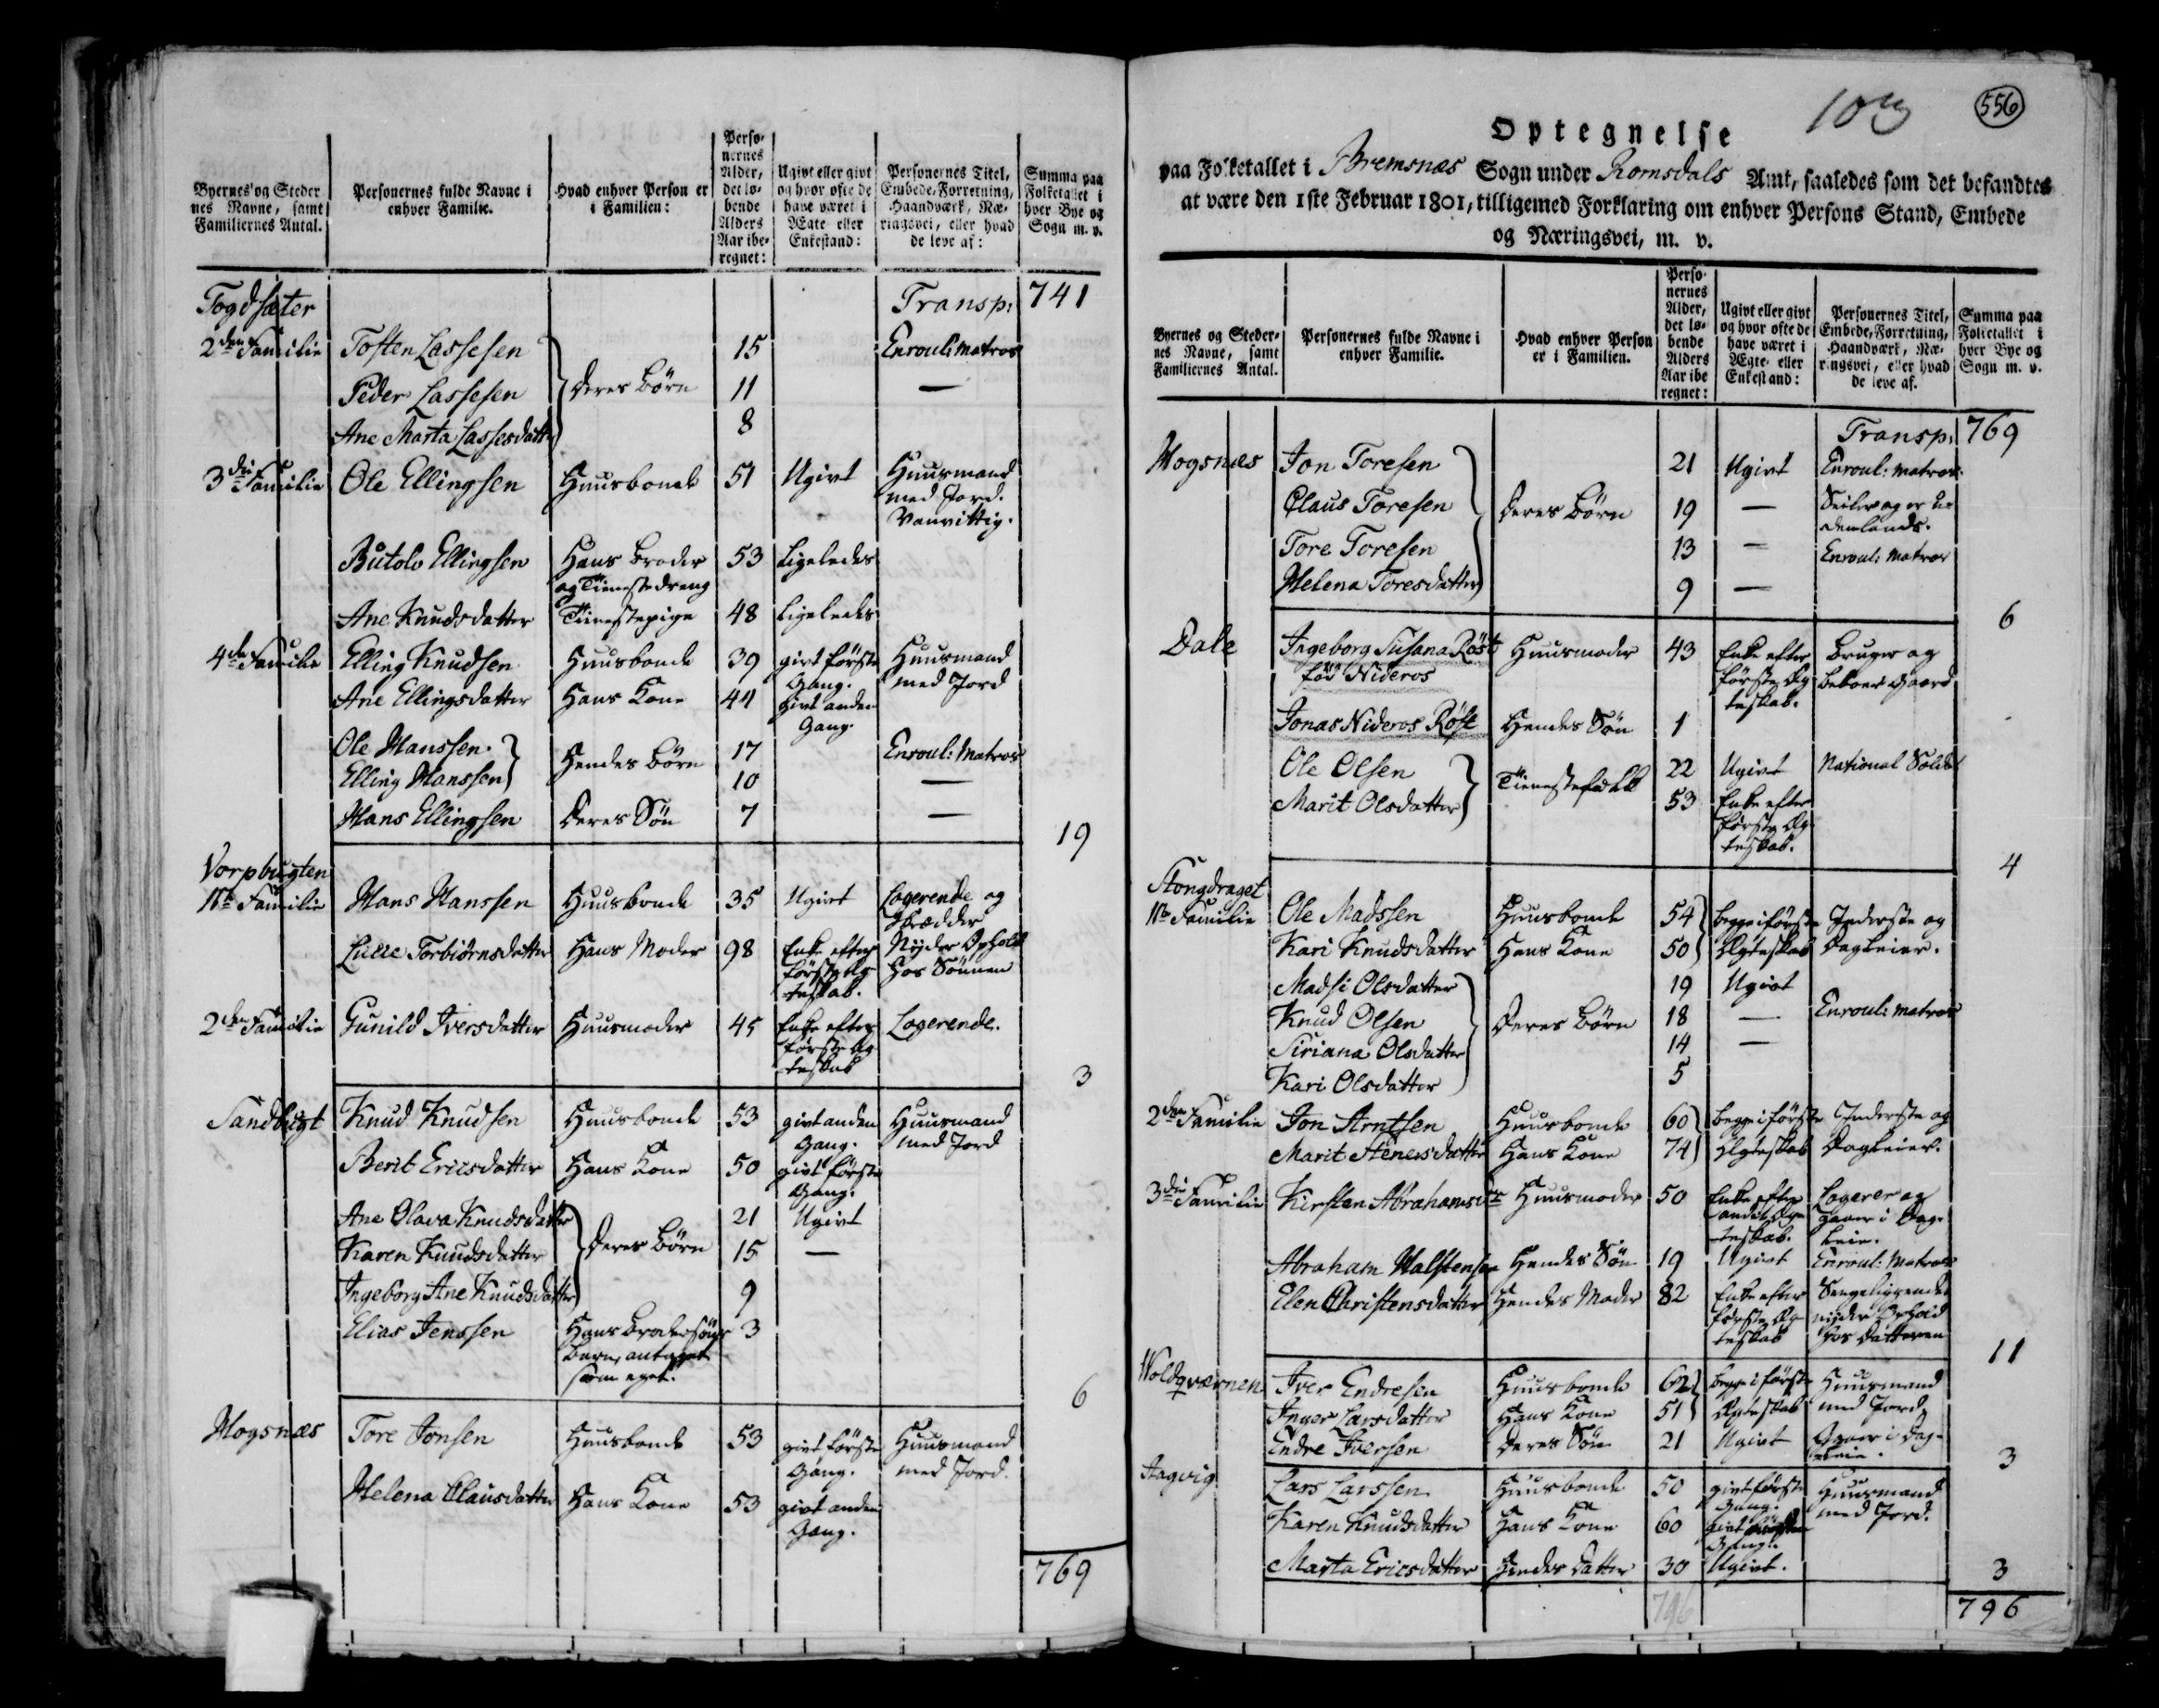 Byernes og Steder
nes Navne, samt
Familiernes Antal.
Personernes fulde Navne i
enhver Familie.
Hvad enhver Person er
i Familien:
Perso-
nernes
Alder,
det lø-
bende
Alders
Aar ibe-
regnet:
Ugivt eller givt
og hvor ofte de
have været i
Ægte eller
Enkestand:
Personernes Titel,
Embede, Forretning,
Haandværk, Næ-
ringsvei, eller hvad
de leve af:
Summa paa
Folketallet i
hver Bye og
Sogn m. v.
Togdsæter Transp: 741
2den Familie Tosten Lassesen 15 Enroul: Matros
Peder Lassesen Deres Börn 11 —
Ane Marta Lassesdatter 8
3die Familie Ole Ellingsen Huusbonde 51 Ugivt Huusmand
med Jord.
Vanvittig.
Butolv Ellingsen Hans Broder 53 Ligeledes
og Tienestedreng
Ane Knudsdatter Tienestepige 48 Ligeledes
4de Familie Elling Knudsen Huusbonde 39 givt første Huusmand
Gang. med Jord
Ane Ellingsdatter Hans Kone 44 givt anden
Gang.
Ole Hanssen 17 Enroul: Matros
Hendes Börn
Elling Hanssen 10 —
Hans Ellingsen Deres Sön 7 —
19
Vorpbugten
1te Familie Hans Hanssen Huusbonde 35 Ugivt Logerende og
Skrædder
Lucie Torbiörnsdatter Hans Moder 98 Enke efter Nyder Ophold
første Æg- hos Sönnen
teskab.
2den Familie Gunild Iversdatter Huusmoder 45 Enke efter Logerende.
første Æg-
teskab
3
Sandbugt Knud Knudsen Huusbonde 53 givt anden Huusmand
Gang. med Jord
Berit Ericsdatter Hans Kone 50 givt første
Gang.
Ane Olava Knudsdatter 21 Ugivt
Karen Knudsdatter Deres Börn 15 —
Ingeborg Ane Knudsdatter 9
Elias Jenssen Hans Brodersöns 3
Barn, antaget
som eget.
6
Mogsnæs Tore Jonsen Huusbonde 53 givt første Huusmand
Gang. med Jord.
Helena Clausdatter Hans Kone 53 givt anden
Gang.
769
556
Optegnelse
paa Folketallet i Bremsnæs Sogn under Romsdals Amt, saaledes som det befandtes
at være den 1ste Februar 1801, tilligemed Forklaring om enhver Persons Stand, Embede
og Næringsvei, m. v.
Byernes og Steder-
nes Navne, samt
Familiernes Antal.
Personernes fulde Navne i
enhver Familie.
Hvad enhver Person
er i Familien.
Perso-
nernes
Alder,
det lø-
bende
Alders
Aar ibe
regnet:
Ugivt eller givt
og hvor ofte de
have været i
Ægte- eller
Enkestand:
Personernes Titel,
Embede, Forretning,
Haandværk, Næ-
ringsvei, eller hvad
de leve af.
Summa paa
Folketallet i
hver Bye og
Sogn m. v.
Transp: 769
Mogsnæs Jon Toresen 21 Ugivt Enroul: Matros.
Claus Toresen Deres Börn 19 — Seiler og er u-
denlands.
Tore Toresen 13 — Enroul: Matros
Helena Toresdatter 9 —
6
Dale Ingeborg Susana Röst Huusmoder 43 Enke efter Bruger og
föd Nideros første Æg- beboer Gaard
teskab.
Jonas Nideros Röst Hendes Sön 1
Ole Olsen 22 Ugivt National Soldat
Tienestefolk
Marit Olsdatter 53 Enke efter
første Æg-
teskab.
4
Stongdraget
1te Familie Ole Madssen Huusbonde 54 begge i første Inderste og
Kari Knudsdatter Hans Kone 50 Ægteskab Dagleier.
Madsi Olsdatter 19 Ugivt
Knud Olsen Deres Börn 18 — Enroul: Matros
Siriana Olsdatter 14 —
Kari Olsdatter 5
2den Familie Jon Arntsen Huusbonde 60 begge i første Inderste og
Marit Stenersdatter Hans Kone 74 Ægteskab Dagleier.
3die Familie Kirsten Abrahamsdr Huusmoder 50 Enke efter Logerer og
andet Æg- gaaer i Dag-
teskab. leie.
Abraham Halstensen Hendes Sön 19 Ugivt Enroul: Matros
Elen Christensdatter Hendes Moder 82 Enke efter Sengeliggende
første Æg- nyder Ophold
teskab hos Datteren
11
Woldqværnen Iver Endresen Huusbonde 62 begge i første Huusmand
Inger Larsdatter Hans Kone 51 Ægteskab med Jord
Endre Iversen Deres Sön 21 Ugivt Gaaer i Dag-
leie.
3
Stagvig Lars Larssen Huusbonde 50 givt første Huusmand
Gang. med Jord.
Karen Knudsdatter Hans Kone 60 givt
Gang.
Marta Ericsdatter Hendes Datter 30 Ugivt.
3
796
796